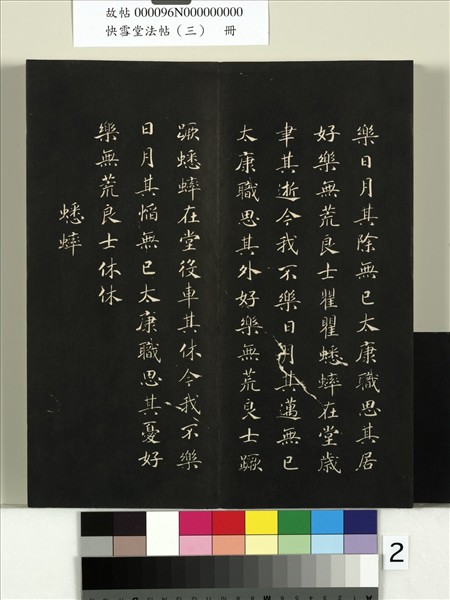 故帖 000096N000000000
快雪堂法帖（三） 冊
樂日月其除無已太康職思其居
好樂無荒良士瞿瞿蟋蟀在堂歲
聿其逝今我不樂日月其邁無已
太康職思其外好樂無荒良士蹶
蹶蟋蟀在堂役車其休今我不樂
日月其慆無已太康職思其憂好
樂無荒良士休休
蟋蟀
2